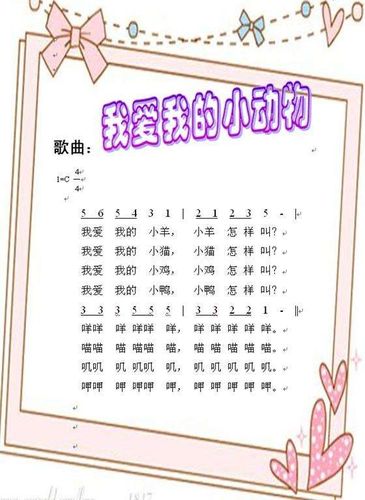 我爱我的小动物
歌曲：
1=C 4/4
5 6 5 4 3 1 | 2 1 2 3 5 - |
我爱 我的 小羊， 小羊 怎样 叫？
我爱 我的 小猫， 小猫 怎样 叫？
我爱 我的 小鸡， 小鸡 怎样 叫？
我爱 我的 小鸭， 小鸭 怎样 叫？
3 3 3 5 5 5 | 3 3 2 2 1 - ||
咩咩 咩 咩咩 咩， 咩 咩咩咩 咩。
喵喵 喵 喵喵 喵， 喵 喵喵喵 喵。
叽叽 叽 叽叽 叽， 叽 叽叽叽 叽。
呷呷 呷 呷呷 呷， 呷 呷呷呷 呷。